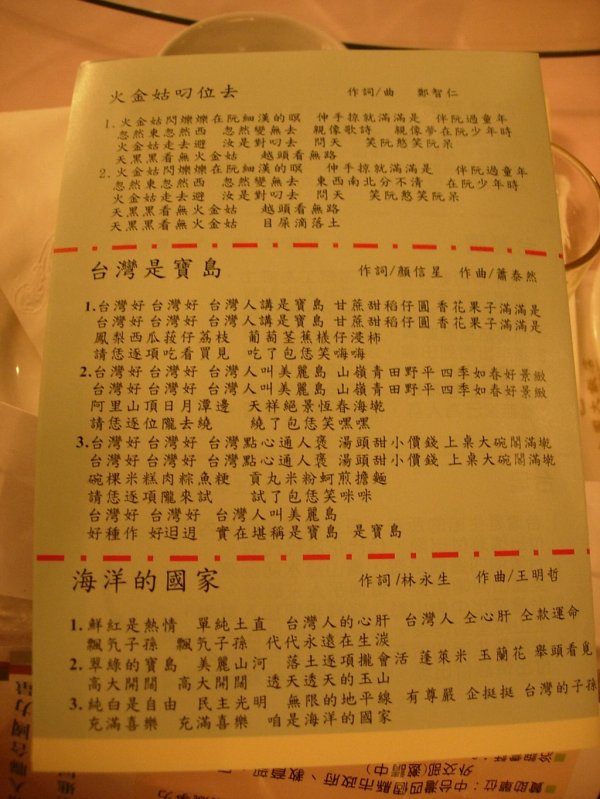 火金姑叨位去 作詞/曲 鄭智仁
1. 火金姑閃爍爍在阮細漢的暝 伸手掠就滿滿是 伴阮過童年
忽然東忽然西 忽然變無去 親像歌詩 親像夢在阮少年時
火金姑走去避 汝是對叨去 問天 笑阮憨笑阮呆
天黑黑看無火金姑 越頭看無路
2. 火金姑閃爍爍在阮細漢的暝 伸手掠就滿滿是 伴阮過童年
忽然東忽然西 忽然變無去 東西南北分不清 在阮少年時
火金姑走去避 汝是對叨去 問天 笑阮憨笑阮呆
天黑黑看無火金姑 越頭看無路
天黑黑看無火金姑 目屎滴落土
台灣是寶島 作詞/顏信星 作曲/蕭泰然
1.台灣好 台灣好 台灣人講是寶島 甘蔗甜稻仔圓 香花果子滿滿是
台灣好 台灣好 台灣人講是寶島 甘蔗甜稻仔圓 香花果子滿滿是
鳳梨西瓜菝仔荔枝 葡萄荃蕉檨仔浸柿
請恁逐項吃看買見 吃了包恁笑嗨嗨
2.台灣好 台灣好 台灣人叫美麗島 山嶺青田野平 四季如春好景緻
台灣好 台灣好 台灣人叫美麗島 山嶺青田野平 四季如春好景緻
阿里山頂日月潭邊 天祥絕景恆春海墘
請恁逐位隴去繞 繞了包恁笑嘿嘿
3.台灣好 台灣好 台灣點心通人褒 湯頭甜小價錢 上桌大碗閣滿墘
台灣好 台灣好 台灣點心通人褒 湯頭甜小價錢 上桌大碗閣滿墘
碗粿米糕肉粽魚粳 貢丸米粉蚵煎擔麵
請恁逐項隴來試 試了包恁笑咪咪
台灣好 台灣好 台灣人叫美麗島
好種作 好 實在堪稱是寶島 是寶島
海洋的國家 作詞/林永生 作曲/王明哲
1.鮮紅是熱情 單純土直 台灣人的心肝 台灣人 仝心肝 仝款運命
飄 子孫 飄 子孫 代代永遠在生湠
2.翠綠的寶島 美麗山河 落土逐項攏會活 蓬萊米 玉蘭花 舉頭看覓
高大開闊 高大開闊 透天透天的玉山
3.純白是自由 民主光明 無限的地平線 有尊嚴 企挺挺 台灣的子孫
充滿喜樂 充滿喜樂 咱是海洋的國家
贊助單位：中台灣四個縣市政府、教育部
外交部(邀請中)